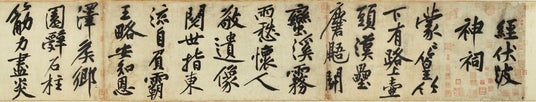 經伏波
神祠
蒙〻篁竹
下有路上壺
頭漢壘
麏鼯鬪
蠻溪霧
雨愁懷人
敬遺像
閱世指東
流自負霸
王略安知恩
澤侯鄉
園辭石柱
筋力盡炎